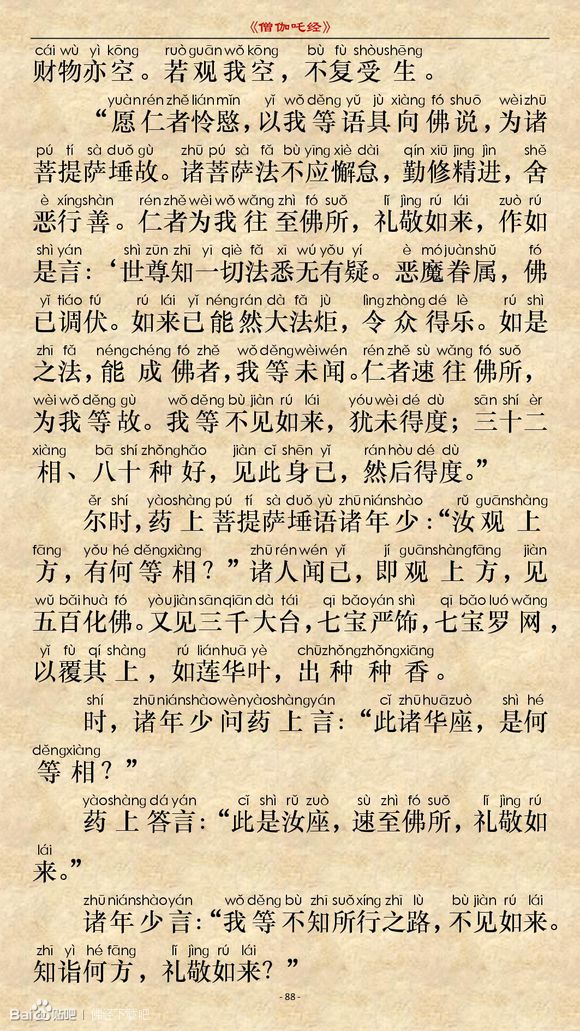 《僧伽吒经》
cái wù yì kōng ruò guān wǒ kōng bù fù shòu shēng
财物亦空。若观我空，不复受生。
yuàn rén zhě lián mǐn yǐ wǒ děng yǔ jù xiàng fó shuō wèi zhū
“愿仁者怜愍，以我等语具向佛说，为诸
pú tí sà duǒ gù zhū pú sà fǎ bù yìng xiè dài qín xiū jīng jìn shě
菩提萨埵故。诸菩萨法不应懈怠，勤修精进，舍
è xíng shàn rén zhě wèi wǒ wǎng zhì fó suǒ lǐ jìng rú lái zuò rú
恶行善。仁者为我往至佛所，礼敬如来，作如
shì yán shì zūn zhī yī qiè fǎ xī wú yǒu yí è mó juàn shǔ fó
是言：‘世尊知一切法悉无有疑。恶魔眷属，佛
yǐ tiáo fú rú lái yǐ néng rán dà fǎ jù lìng zhòng dé lè rú shì
已调伏。如来已能然大法炬，令众得乐。如是
zhī fǎ néng chéng fó zhě wǒ děng wèi wén rén zhě sù wǎng fó suǒ
之法，能成佛者，我等未闻。仁者速往佛所，
wèi wǒ děng gù wǒ děng bù jiàn rú lái yóu wèi dé dù sān shí èr
为我等故。我等不见如来，犹未得度；三十二
xiàng bā shí zhǒng hǎo jiàn cǐ shēn yǐ rán hòu dé dù
相、八十种好，见此身已，然后得度。”
ěr shí yào shàng pú tí sà duǒ yù zhū nián shào rǔ guān shàng
尔时，药上菩提萨埵语诸年少：“汝观上
fāng yǒu hé děng xiàng zhū rén wén yǐ jí guān shàng fāng jiàn
方，有何等相？”诸人闻已，即观上方，见
wǔ bǎi huà fó yòu jiàn sān qiān dà tái qī bǎo yán shì qī bǎo luó wǎng
五百化佛。又见三千大台，七宝严饰，七宝罗网，
yǐ fù qí shàng rú lián huā yè chū zhǒng zhǒng xiāng
以覆其上，如莲华叶，出种种香。
shí zhū nián shào wèn yào shàng yán cǐ zhū huā zuò shì hé
时，诸年少问药上言：“此诸华座，是何
děng xiàng
等相？”
yào shàng dá yán cǐ shì rǔ zuò sù zhì fó suǒ lǐ jìng rú
药上答言：“此是汝座，速至佛所，礼敬如
lái
来。”
zhū nián shào yán wǒ děng bù zhī suǒ xíng zhī lù bù jiàn rú lái
诸年少言：“我等不知所行之路，不见如来。
zhī yì hé fāng lǐ jìng rú lái
知诣何方，礼敬如来？”
- 88 -
Bai贴吧 | 佛经下载吧